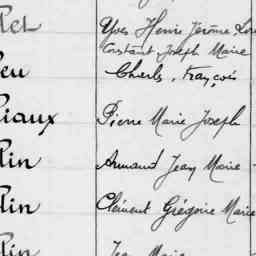 Yves Henri Jérôme
Constant Joseph Marie
eu Charles, François
iaux Pierre Marie Joseph
lin Armand Jean Marie
lin Clément Grégoire Marie
lin Marie